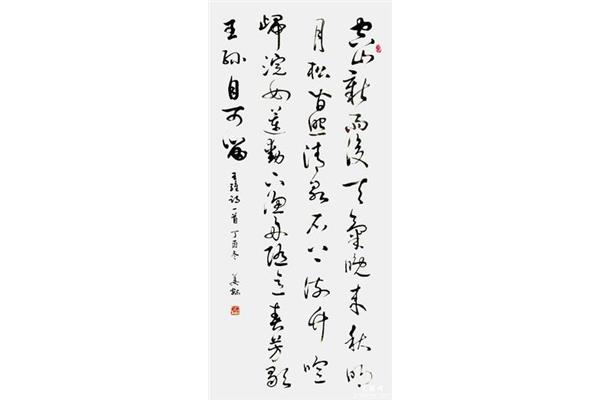 空山新雨後天氣晚来秋明
月松間照清泉石上流竹喧
歸浣女蓮動下漁舟隨意春芳歇
王孫自可留
王維詩一首 丁酉冬 姜